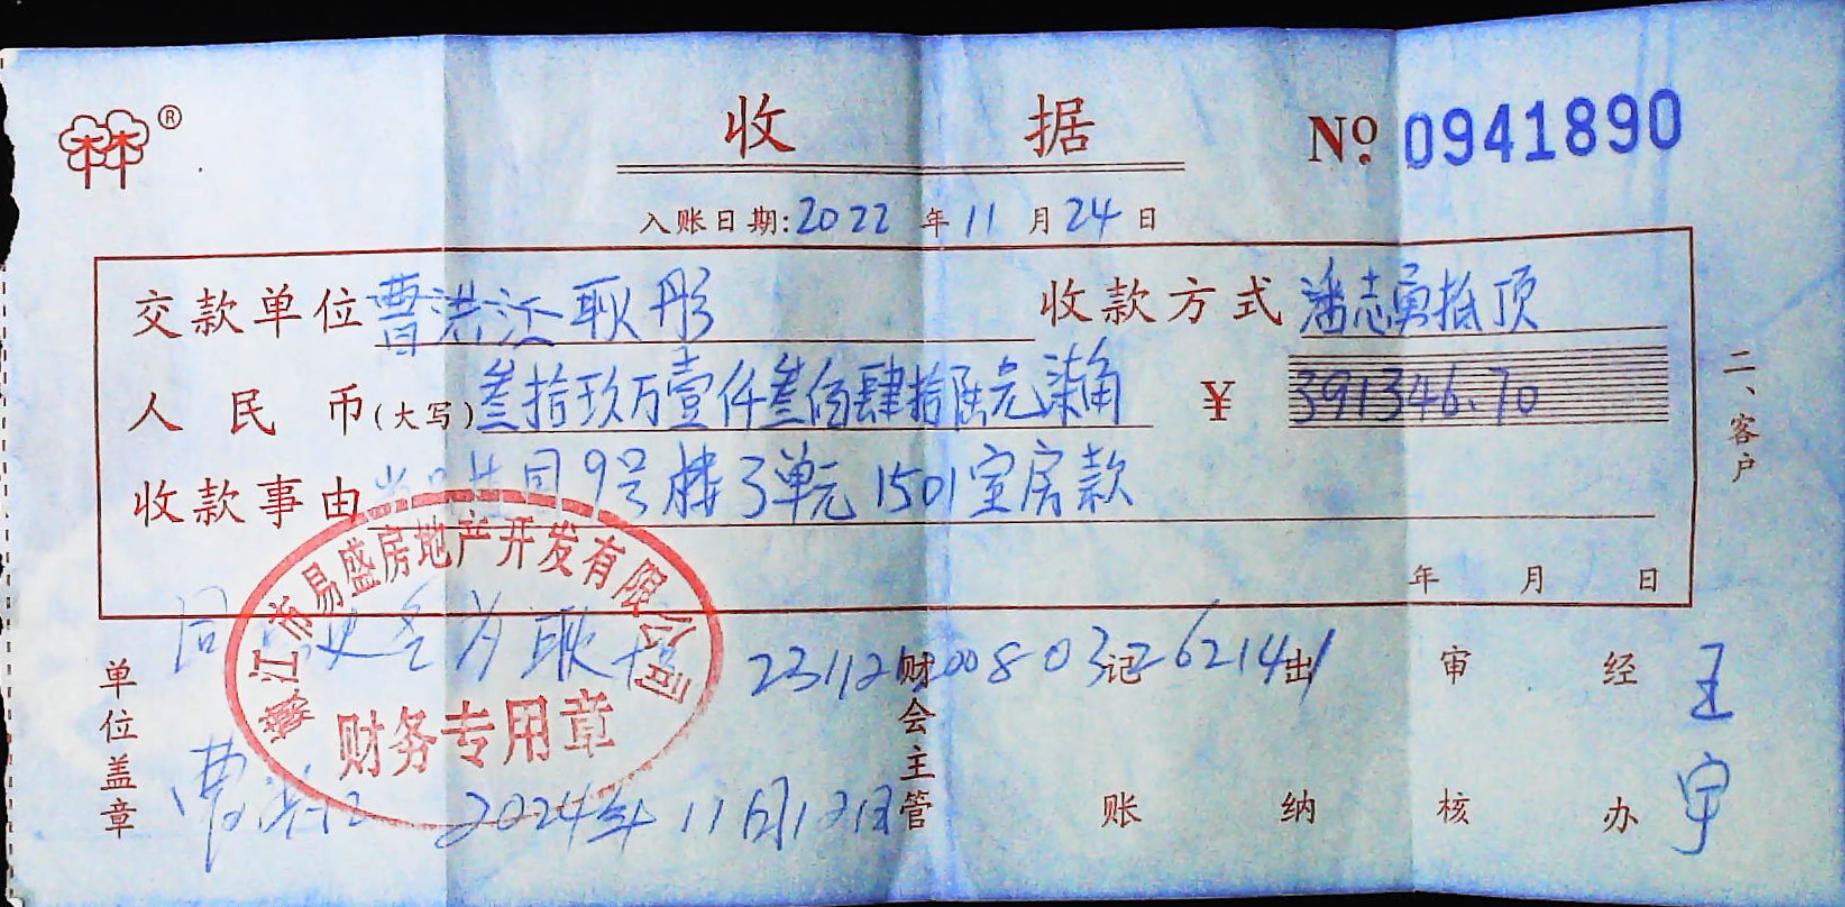 ®
收据
№ 0941890
入账日期:2022年11月24日
交款单位 曹洪江 耿彤 收款方式 潘志勇抵顶
人民币(大写) 叁拾玖万壹仟叁佰肆拾陆元柒角 ¥ 391346.70
收款事由 9号楼3单元1501室房款
年 月 日
二、客户
江市易盛房地产开发有限公司
财务专用章
同 更名为耿
单位盖章 财会主管 记账 出纳 审核 经办 王宇
曹洪江 2024年11月12日